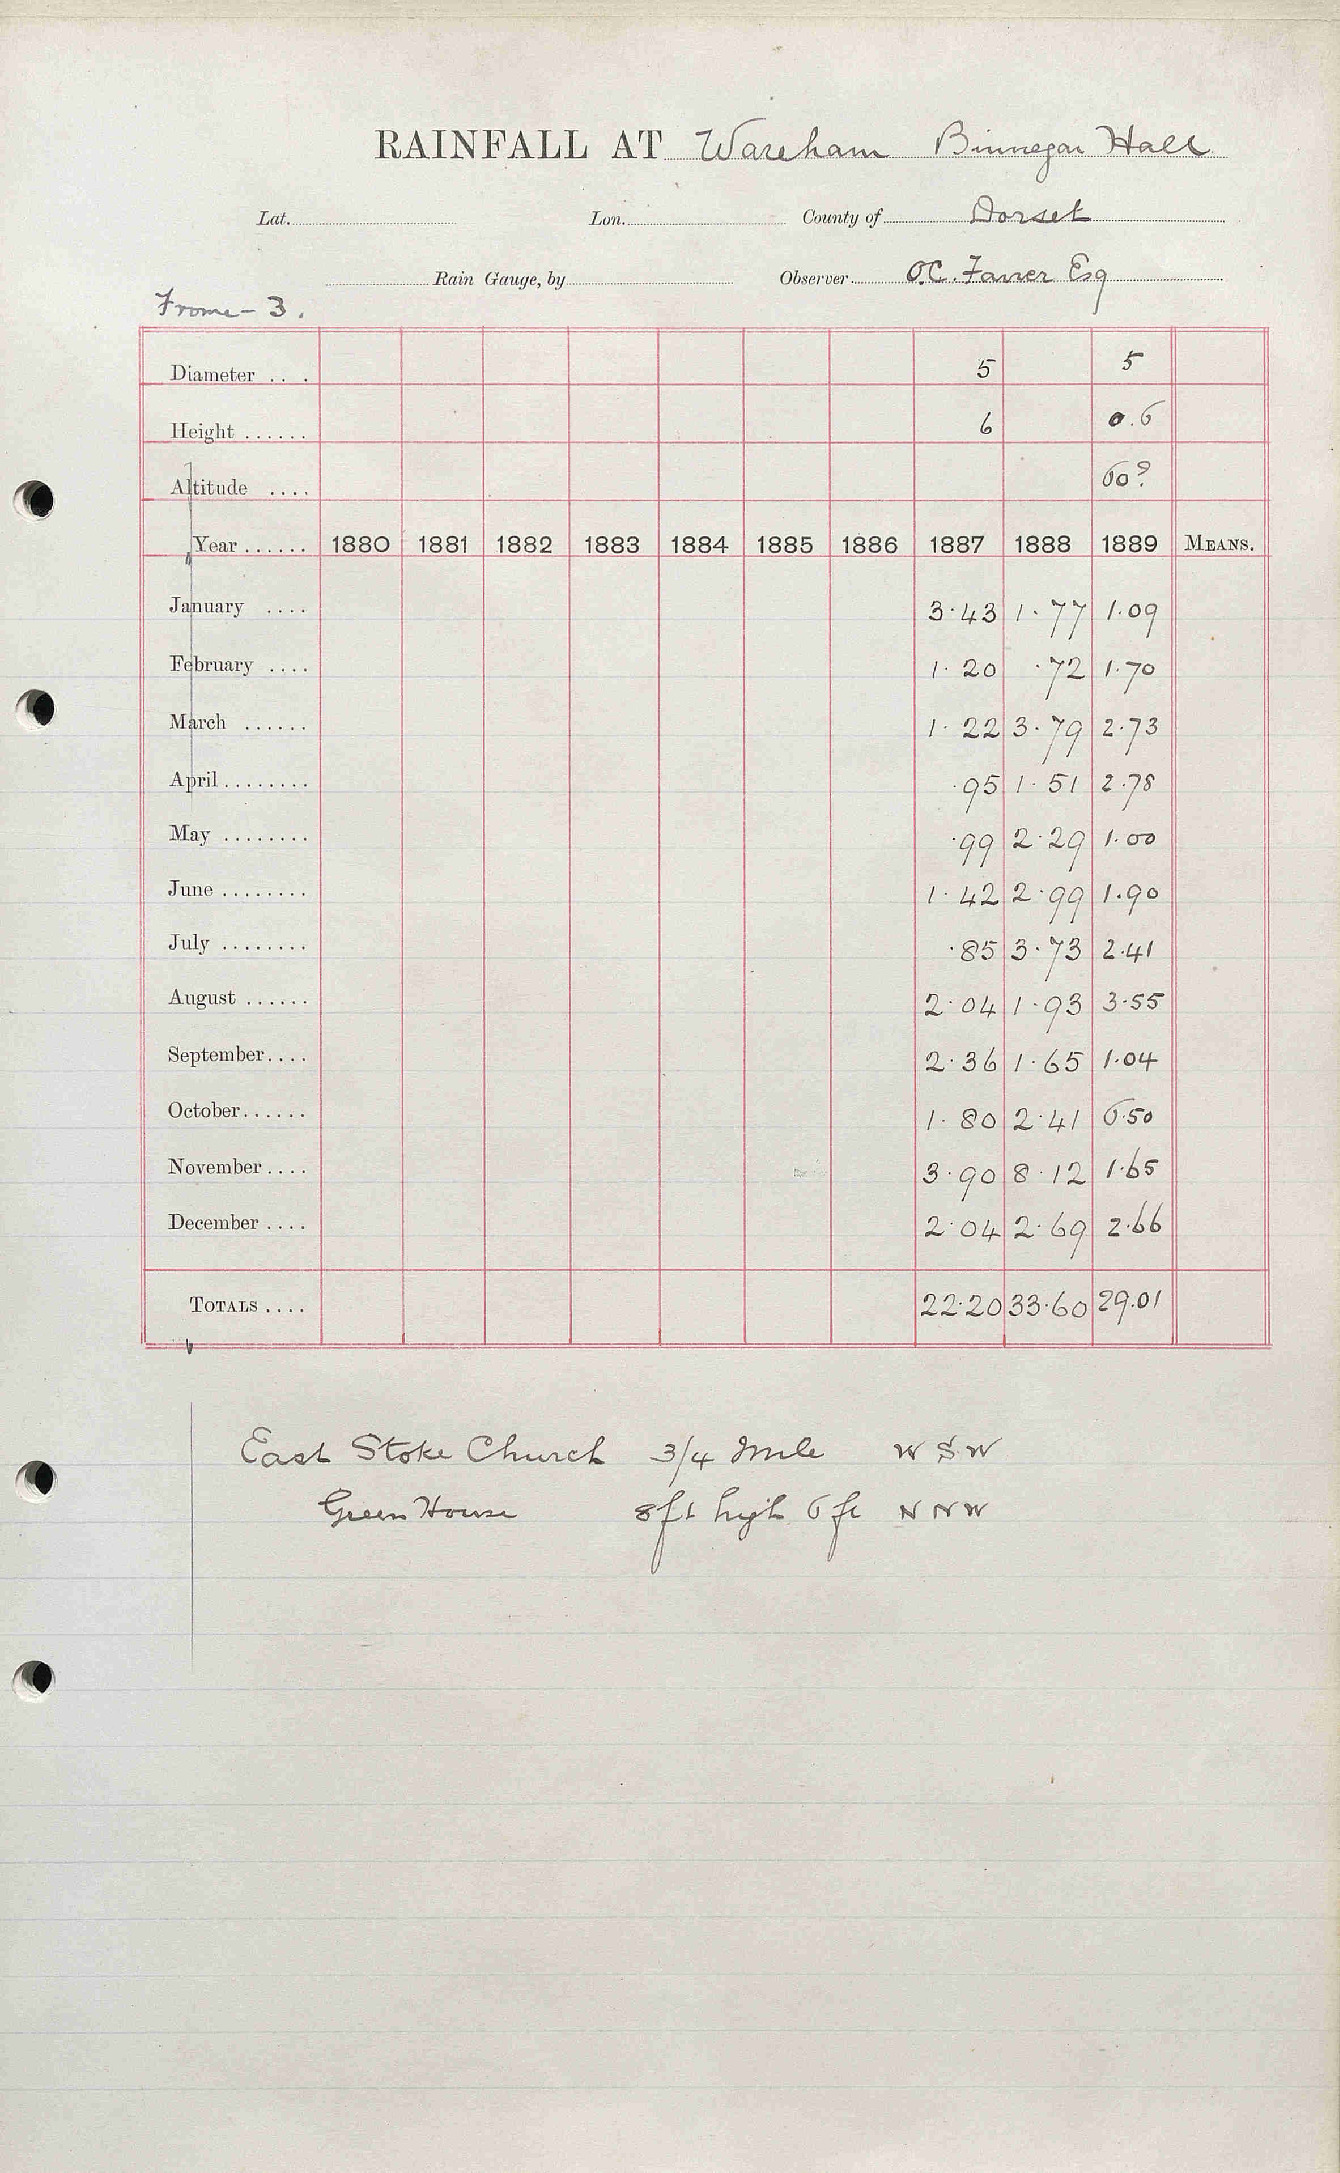 RAINFALL AT Wareham Binnegar Hall
Lat. Lon. County of Dorset
Rain Gauge, by Observer O.C. Farrer Esq
Frome - 3.
Diameter .... 5 5
Height ...... 6 0.6
Altitude .... 60?
Year ...... 1880 1881 1882 1883 1884 1885 1886 1887 1888 1889 MEANS.
January .... 3.43 1.77 1.09
February .... 1.20 .72 1.70
March ...... 1.22 3.79 2.73
April ........ .95 1.51 2.78
May ........ .99 2.29 1.00
June ........ 1.42 2.99 1.90
July ........ .85 3.73 2.41
August ...... 2.04 1.93 3.55
September.... 2.36 1.65 1.04
October...... 1.80 2.41 6.50
November.... 3.90 8.12 1.65
December .... 2.04 2.69 2.66
TOTALS .... 22.20 33.60 29.01
East Stoke Church 3/4 mile W S W
Green House 8ft high 6 ft N N W